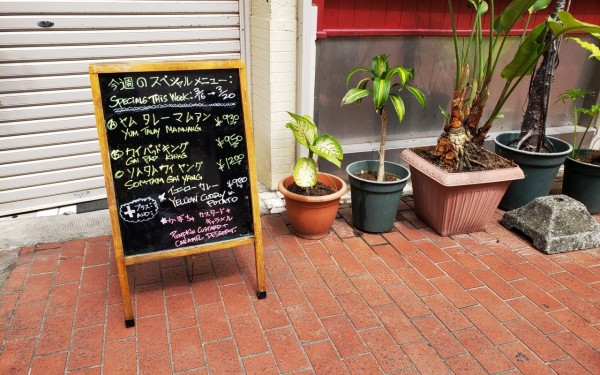 今週のスペシャルメニュー:
SPECIALS THIS WEEK: 3/16 → 3/20
Ⓐ ヤム タレー ママアン ¥930
YUM TALAY MAMUANG
Ⓑ ガイ パッド キング ¥950
GAI PAD KHING
Ⓒ ソムタム ガイ ヤング ¥1280
SOMTAM GAI YANG
イエローカレー ¥980
YELLOW CURRY w/ POTATO
プラス
ALSO:
かぼちゃ カスタード+
キャラメル
PUMPKIN CUSTARD +
CARAMEL DESSERT.